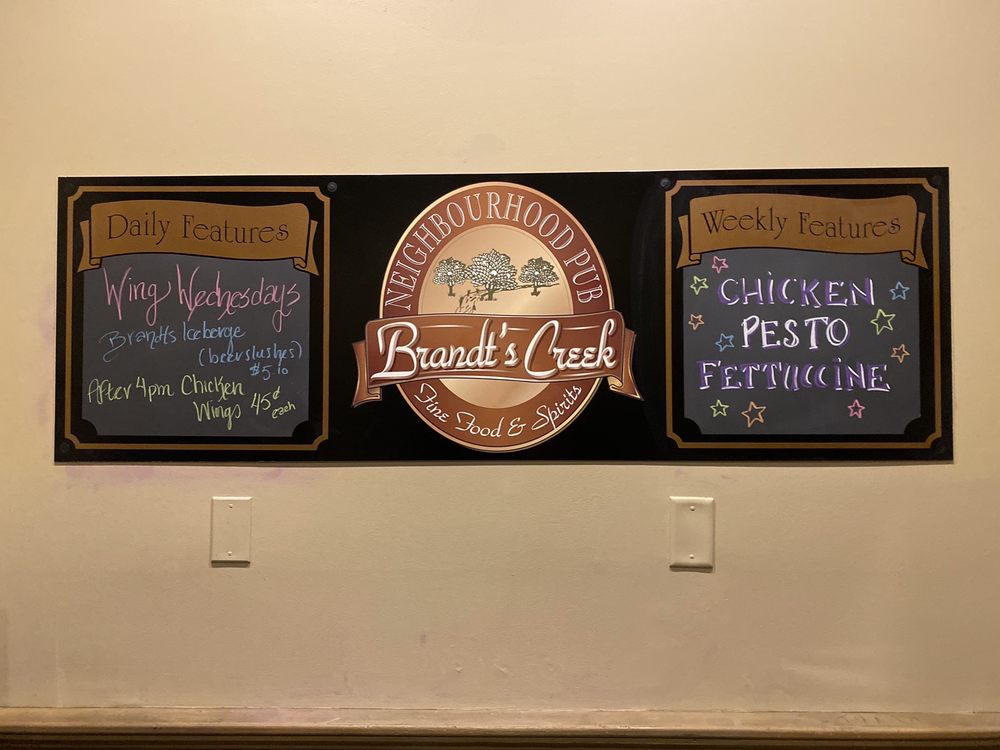 Daily Features
Wing Wednesdays
Brandt's Iceberge
(beerslushes)
$5.10
After 4pm Chicken
Wings 45¢
each
NEIGHBOURHOOD PUB
Brandt's Creek
Fine Food & Spirits
Weekly Features
CHICKEN
PESTO
FETTUCCINE